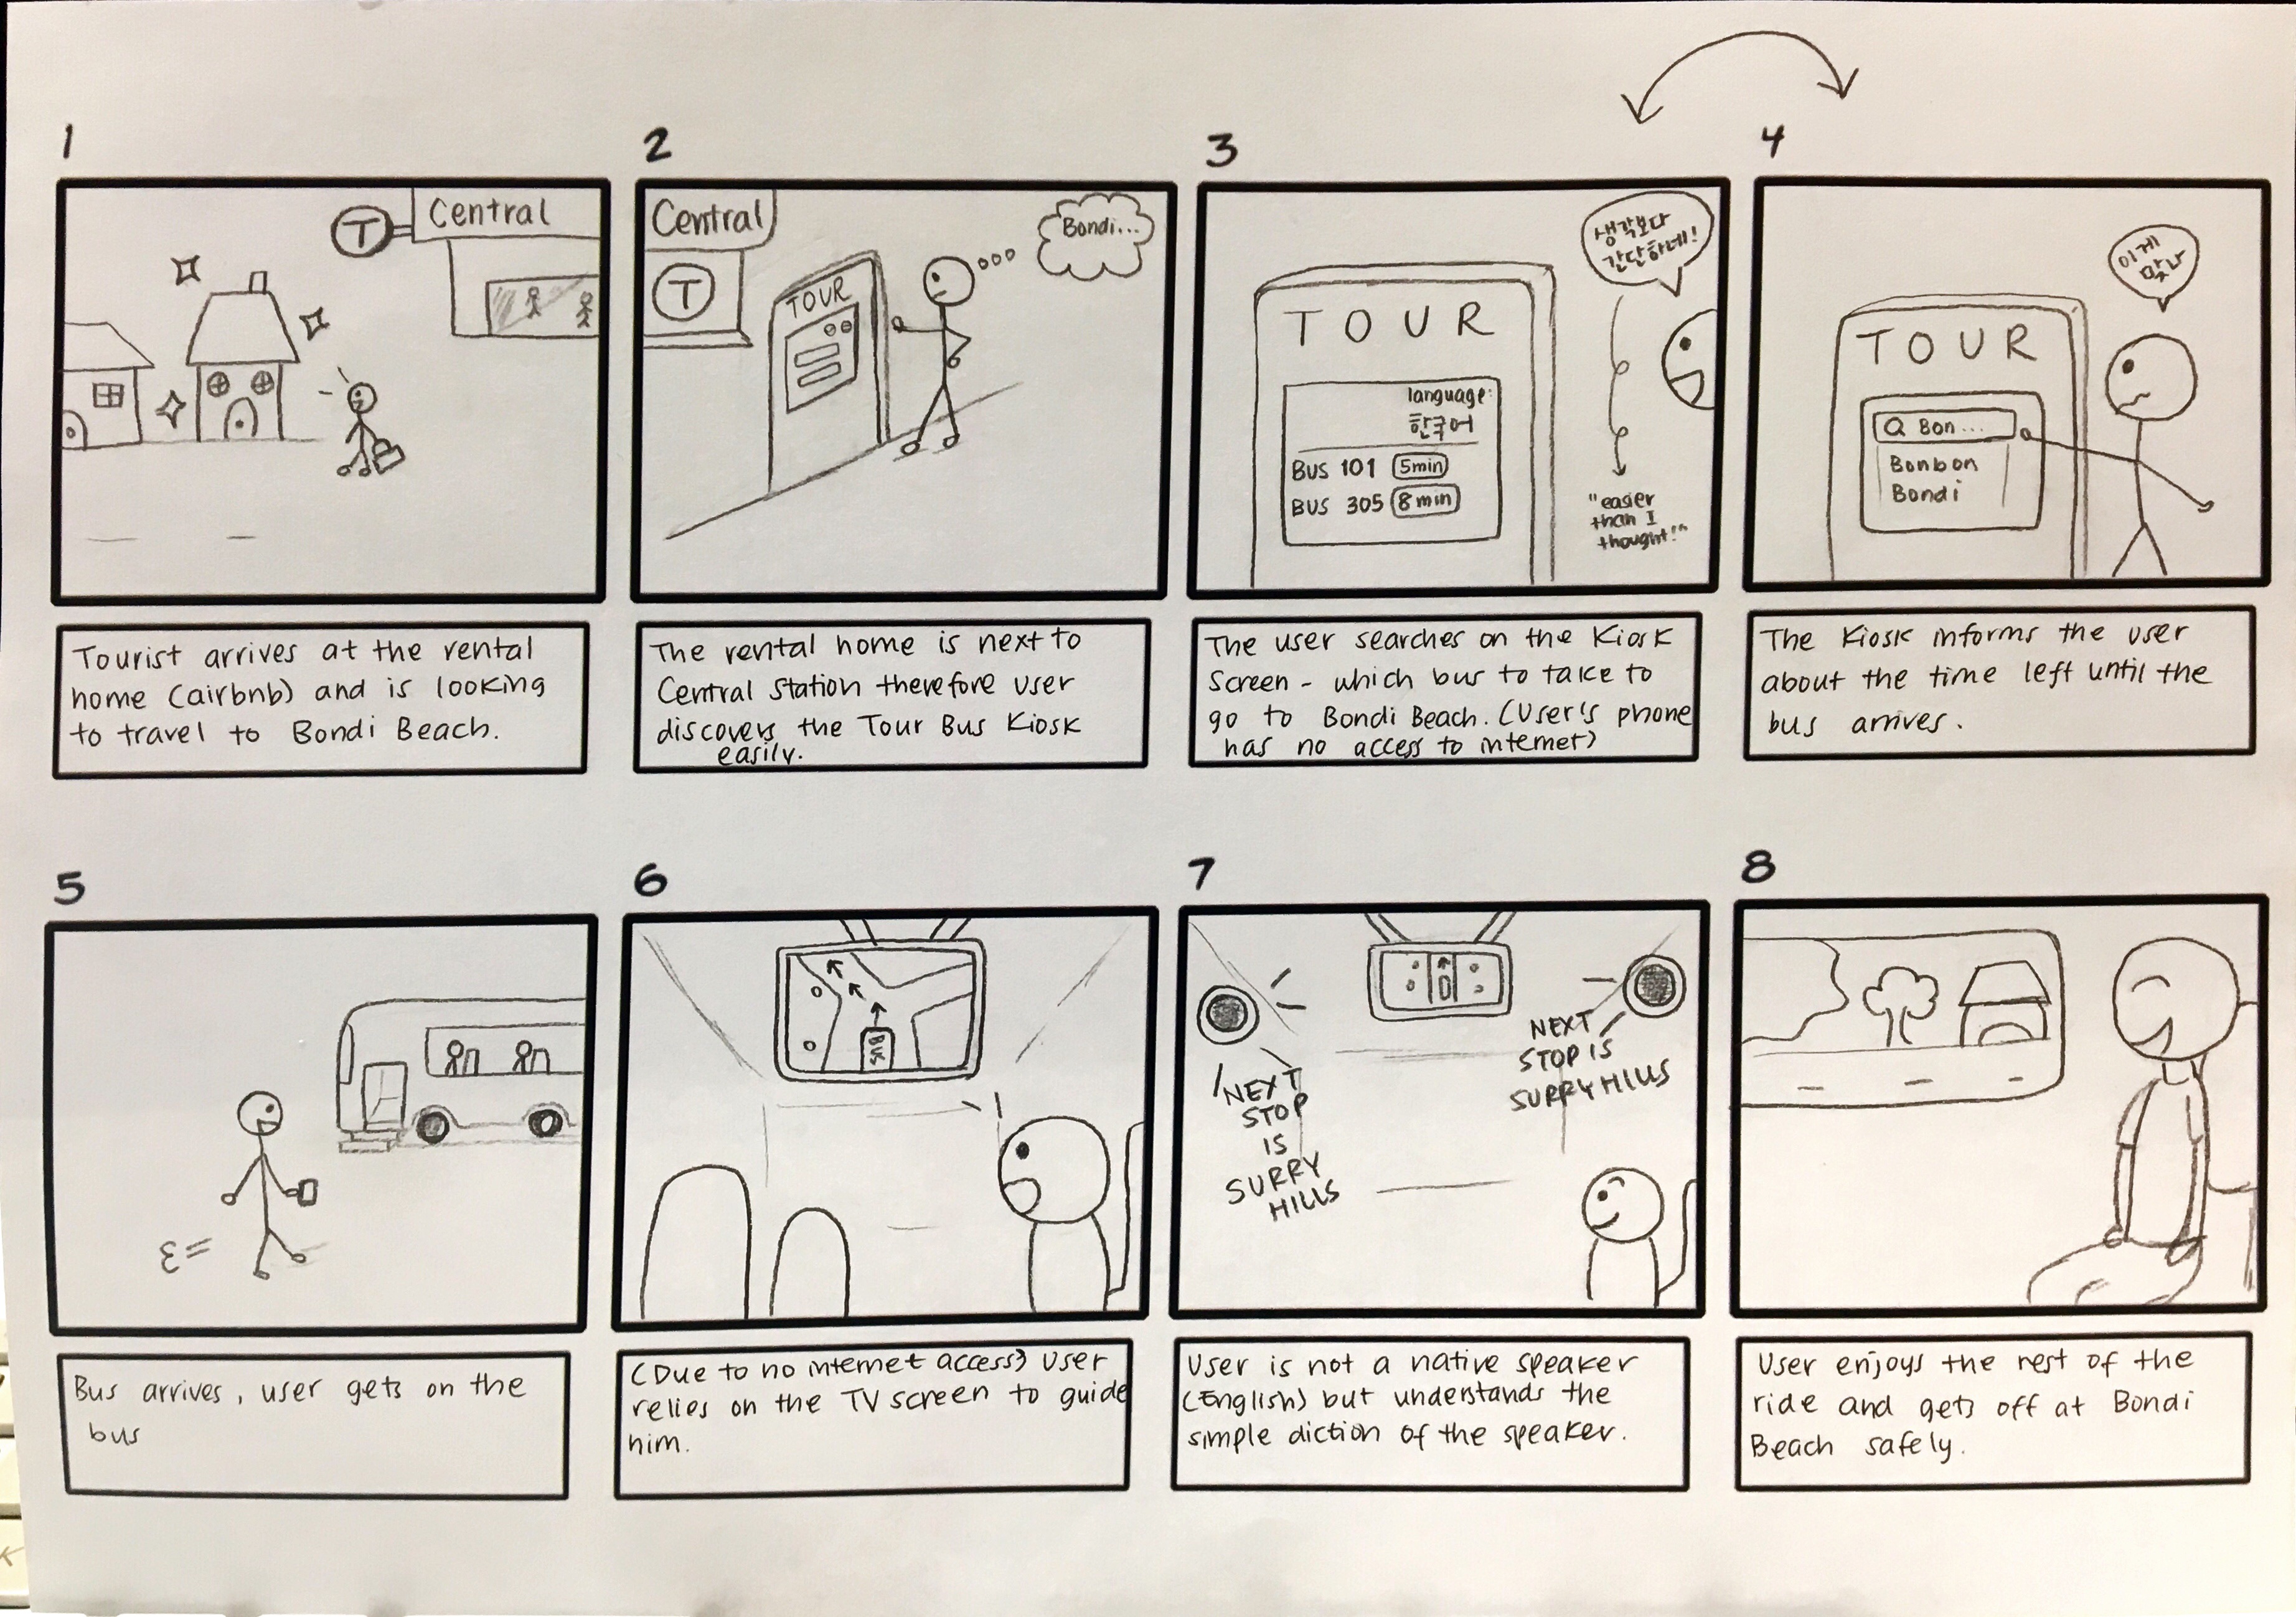 1
Central
T
Tourist arrives at the rental
home (airbnb) and is looking
to travel to Bondi Beach.
2
Central
T
TOUR
Bondi...
The rental home is next to
Central Station therefore user
discovers the Tour Bus Kiosk
easily.
3
생각보다
간단하네!
TOUR
language:
한국어
BUS 101 5min
BUS 305 8 min
"easier
than I
thought!"
The user searches on the Kiosk
Screen - which bus to take to
go to Bondi Beach. (User's phone
has no access to internet)
4
이게
맞나
TOUR
Bon...
Bonbon
Bondi
The Kiosk informs the user
about the time left until the
bus arrives.
5
Bus arrives, user gets on the
bus
6
BUS
(Due to no internet access) User
relies on the TV screen to guide
him.
7
NEXT
STOP
IS
SURRY
HILLS
NEXT
STOP IS
SURRY HILLS
User is not a native speaker
(English) but understands the
simple diction of the speaker.
8
User enjoys the rest of the
ride and gets off at Bondi
Beach safely.